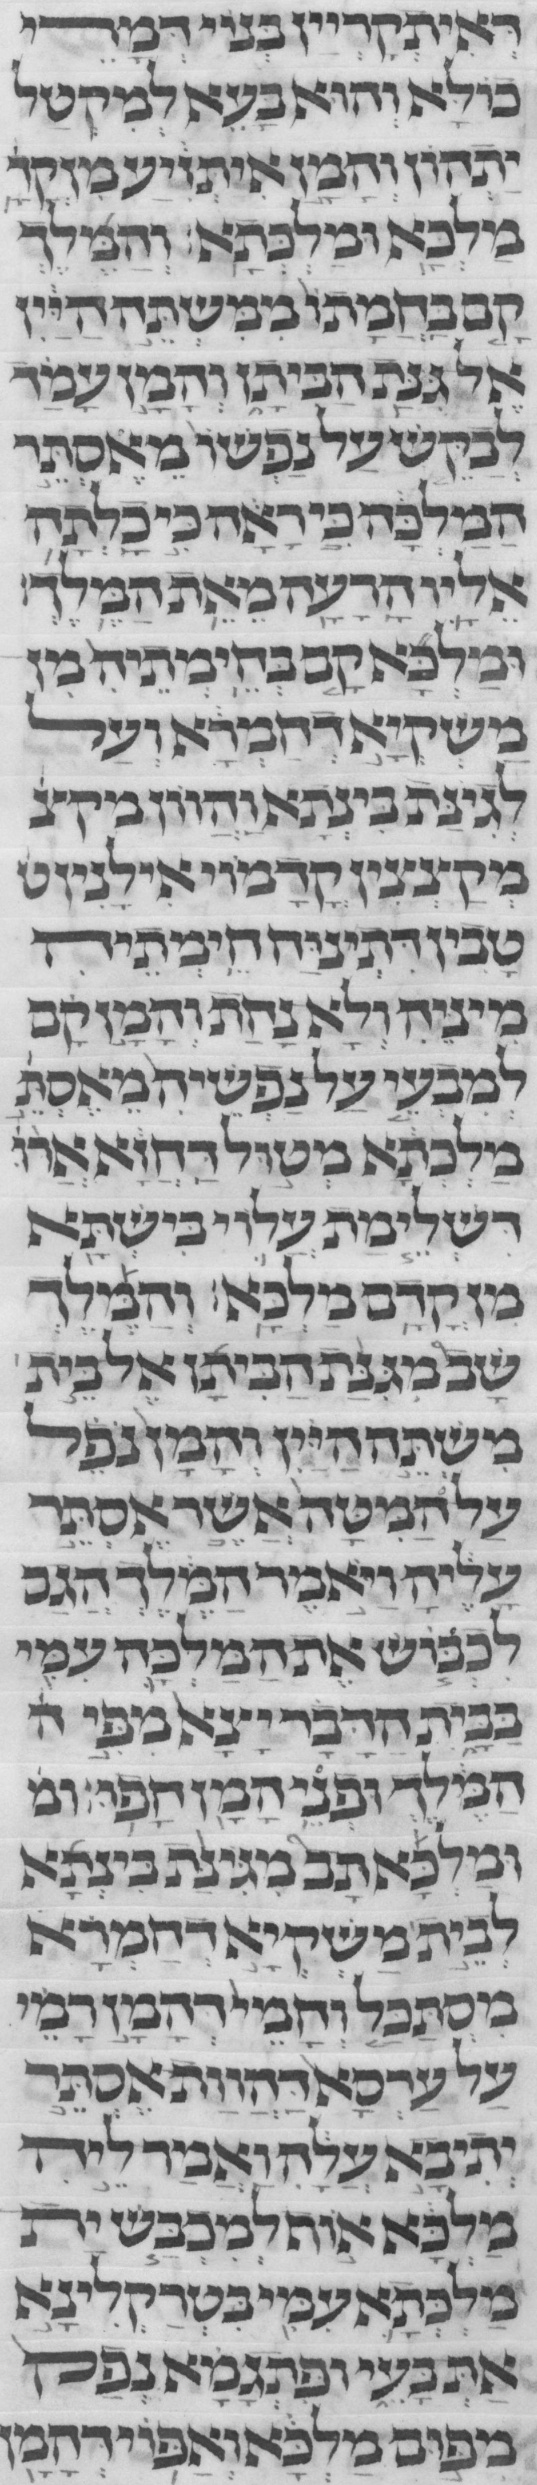 דאיתקריין בני דמרי
כולא והוא בעא למקטל
יתהון והמן איתויע מן קד
מלכא ומלכתא׃ והמלך
קם בחמתו ממשתה היין
אל גנת הביתן והמן עמד
לבקש על נפשו מאסתר
המלכה כי ראה כי כלתה
אליו הרעה מאת המלך׃
ומלכא קם בחימתיה מן
משקיא דחמרא ועל
לגינת בינתא והוון מקיצ
מקצצין קדמוי אילנין ט
טבין דתינוח חימתיה
מיניה ולא נחת והמן קם
למבעי על נפשיה מאסת
מלכתא מטול דחזא ארו
דשלימת עלוי בישתא
מן קדם מלכא׃ והמלך
שב מגנת הביתן אל בית
משתה היין והמן נפל
על המטה אשר אסתר
עליה ויאמר המלך הגם
לכבוש את המלכה עמי
בבית הדבר יצא מפי ה
המלך ופני המן חפו׃ ומ
ומלכא תב מגינת בינתא
לבית משקיא דחמרא
מסתכל וחמי דהמן רמי
על ערסא דהוות אסתר
יתיבא עלה ואמר ליה
מלכא אות למכבש ית
מלכתא עמי בטרקלינא
את בעי ופתגמא נפק
מפום מלכא ואפוי דהמן